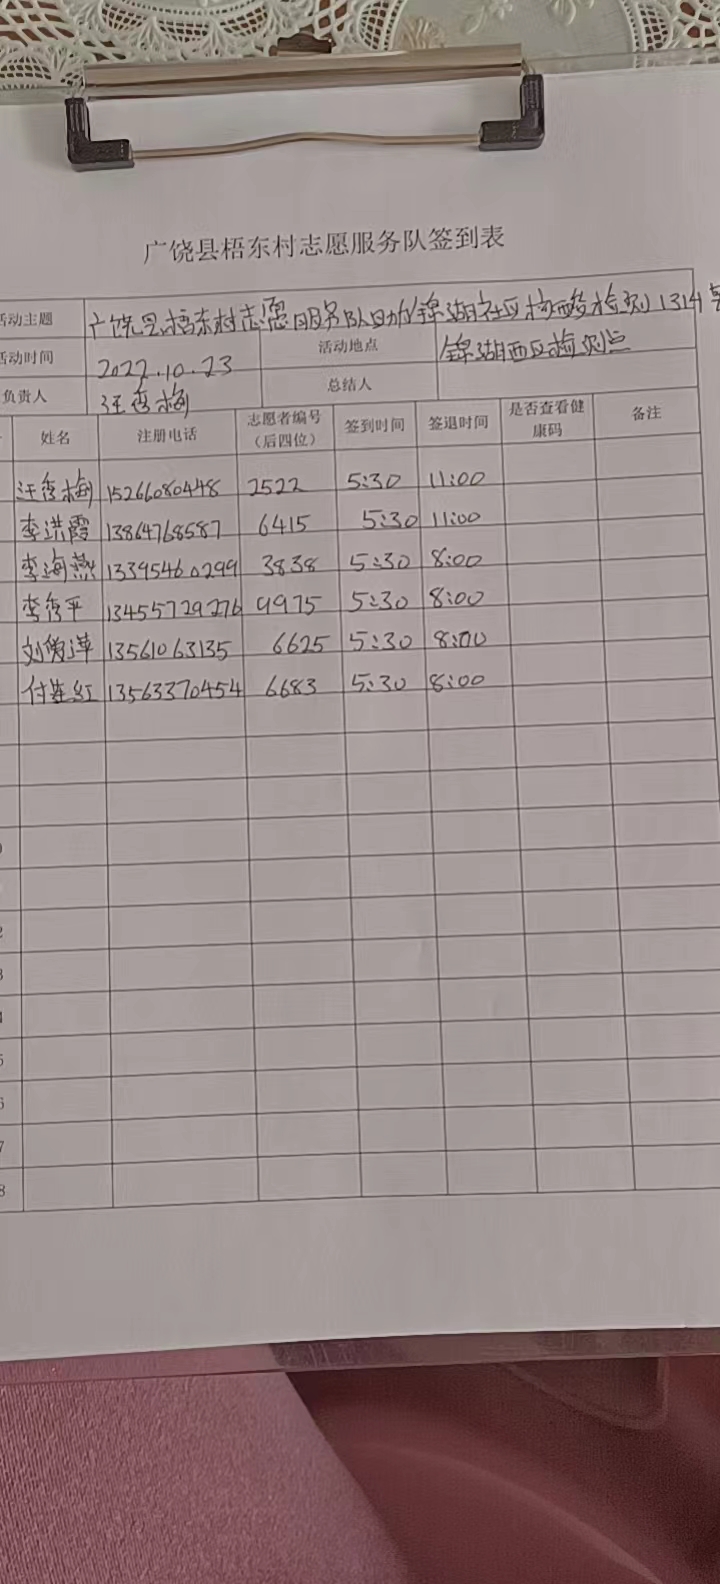 广饶县梧东村志愿服务队签到表
活动主题 广饶县梧东村志愿服务队助力锦湖社区核酸检测1314
活动时间 2022.10.23 活动地点 锦湖西区检测点
负责人 汪秀梅 总结人
姓名 注册电话 志愿者编号（后四位） 签到时间 签退时间 是否查看健康码 备注
汪秀梅 15266080448 2522 5:30 11:00
李洪霞 13864768587 6415 5:30 11:00
李海燕 13395460299 3838 5:30 8:00
李秀平 13455729276 9975 5:30 8:00
刘 萍 13561063135 6625 5:30 8:00
付莲红 13563370454 6683 5:30 8:00